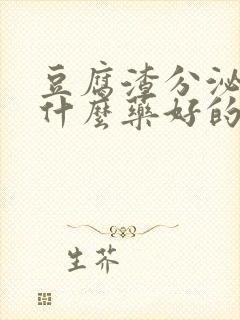 豆腐渣分泌
什麼藥好的
生芥